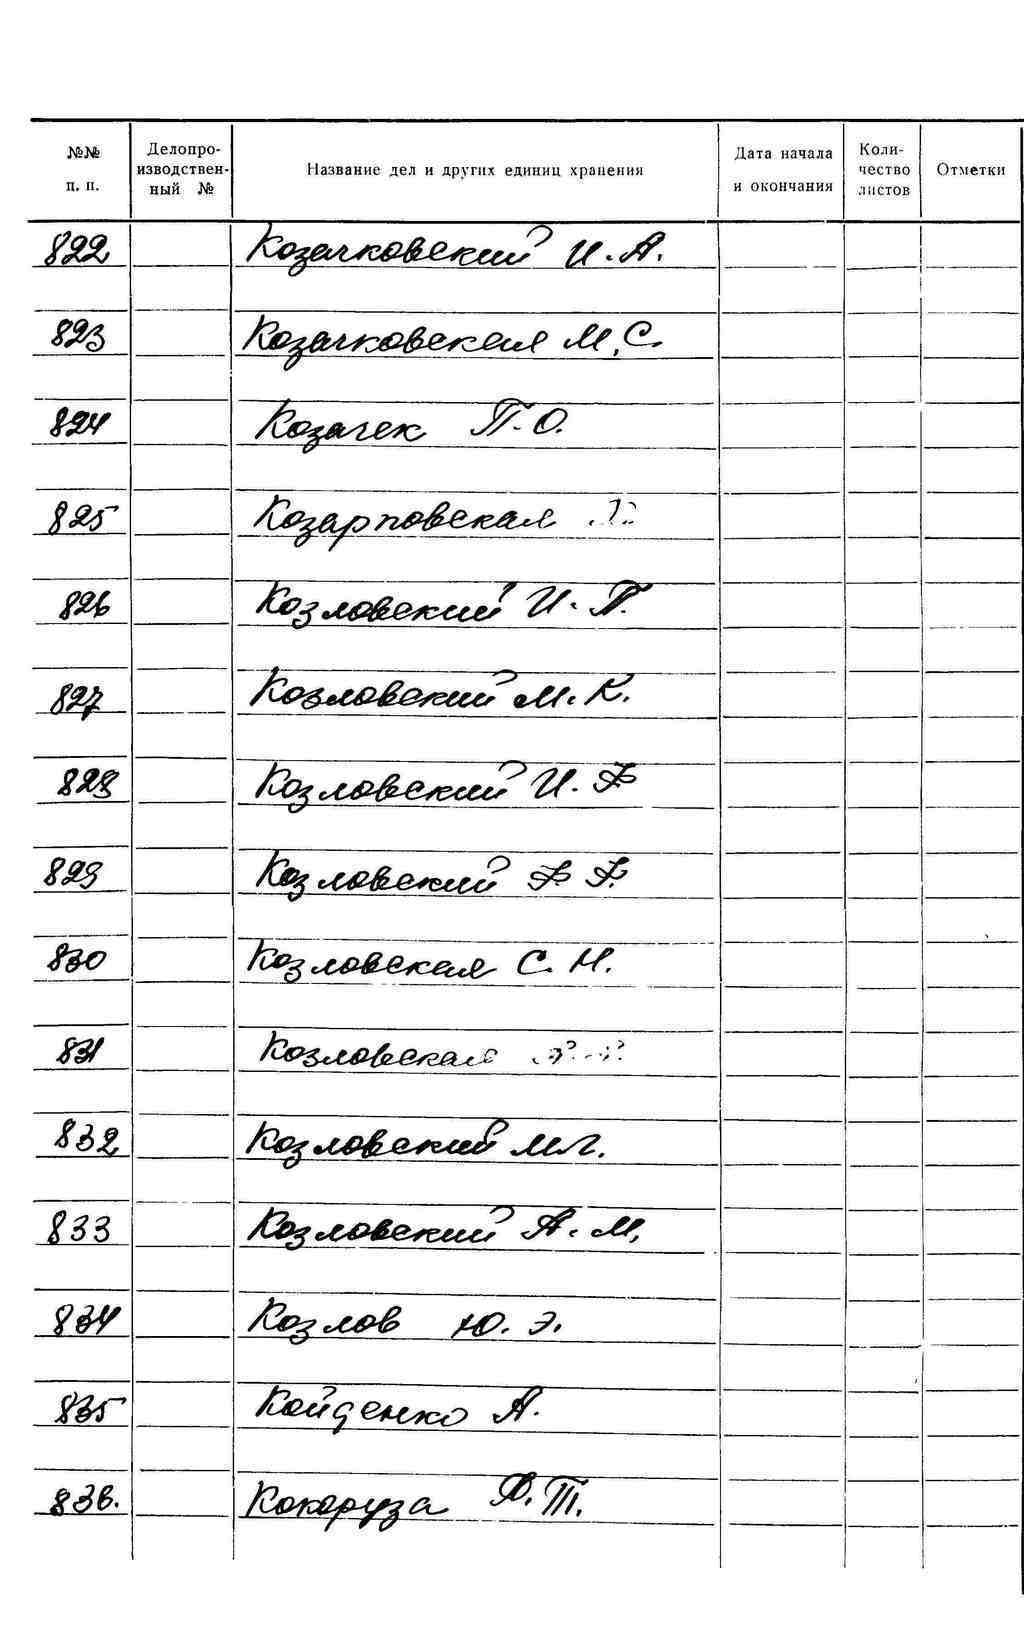 №№ п. п.
Делопро-
изводствен-
ный №
Название дел и других единиц хранения
Дата начала
и окончания
Коли-
чество
листов
Отметки
822 Козачковский И. А.
823 Козачковская М. С.
824 Козачек П. О.
825 Козарповская
826 Козловский И. П.
827 Козловский М. К.
828 Козловский И. Ф
829 Козловский Ф. Ф.
830 Козловская С. Н.
831 Козловская
832 Козловский М. Г.
833 Козловский А. М.
834 Козлов Ю. Э.
835 Койденко А.
836. Кокоруза Ф. Т.